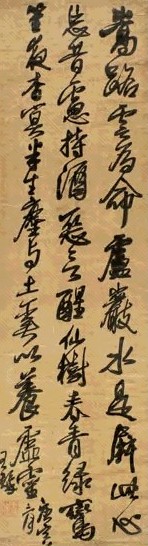 嵩路雲為命盧巖水是此心
忘昔慮持酒惡言醒仙樹春綠鸞
笙夜杳冥半生塵與土奚以養虛靈
庚寅
王鐸